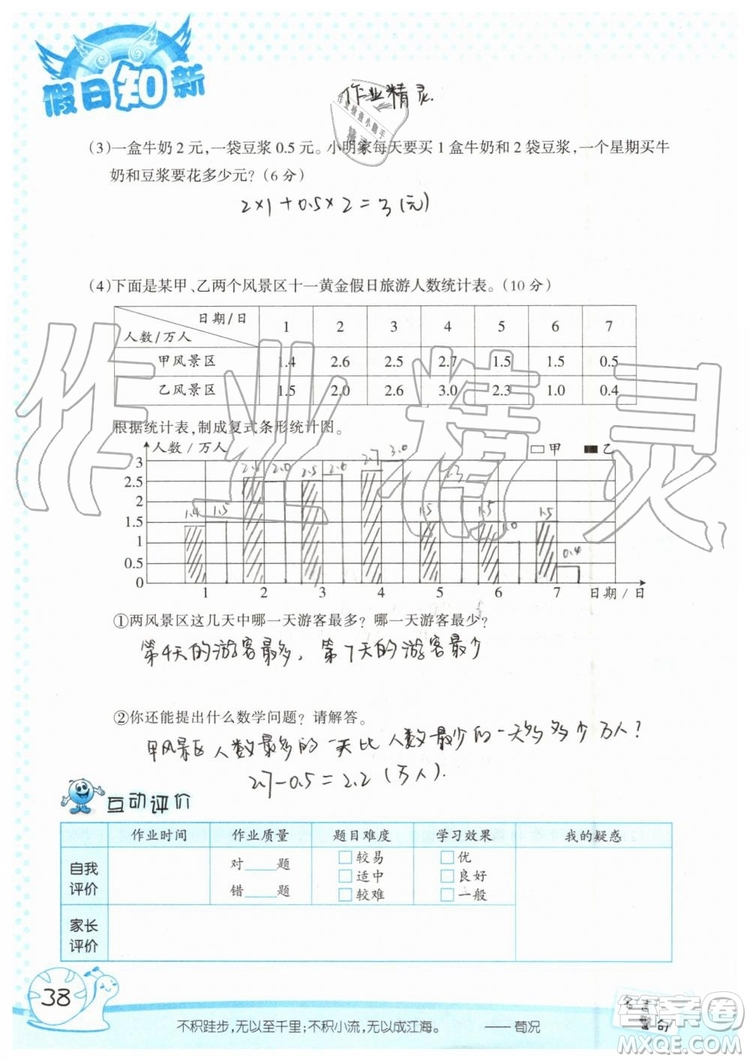 假日知新
作业精灵
(3)一盒牛奶2元,一袋豆浆0.5元。小明家每天要买1盒牛奶和2袋豆浆,一个星期买牛
奶和豆浆要花多少元?(6分)
2×1+0.5×2=3(元)
(4)下面是某甲、乙两个风景区十一黄金假日旅游人数统计表。(10分)
日期/日 1 2 3 4 5 6 7
人数/万人
甲风景区 1.4 2.6 2.5 2.7 1.5 1.5 0.5
乙风景区 1.5 2.0 2.6 3.0 2.3 1.0 0.4
根据统计表,制成复式条形统计图。
人数/万人 甲 乙
3
2.5
2
1.5
1
0.5
0
1.4 1.5 2.6 2.0 2.5 2.6 2.7 3.0 1.5 2.3 1.5 1.0 1.5 0.4
1 2 3 4 5 6 7 日期/日
①两风景区这几天中哪一天游客最多?哪一天游客最少?
第4天的游客最多,第7天的游客最少
②你还能提出什么数学问题?请解答。
甲风景区人数最多的一天比人数最少的一天多多少万人?
2.7-0.5=2.2(万人).
互动评价
作业时间 作业质量 题目难度 学习效果 我的疑惑
自我评价 对 题 错 题 □较易 □适中 □较难 □优 □良好 □一般
家长评价
38
不积跬步,无以至千里;不积小流,无以成江海。 ——荀况
作业精灵
答案圈
MXQE.COM